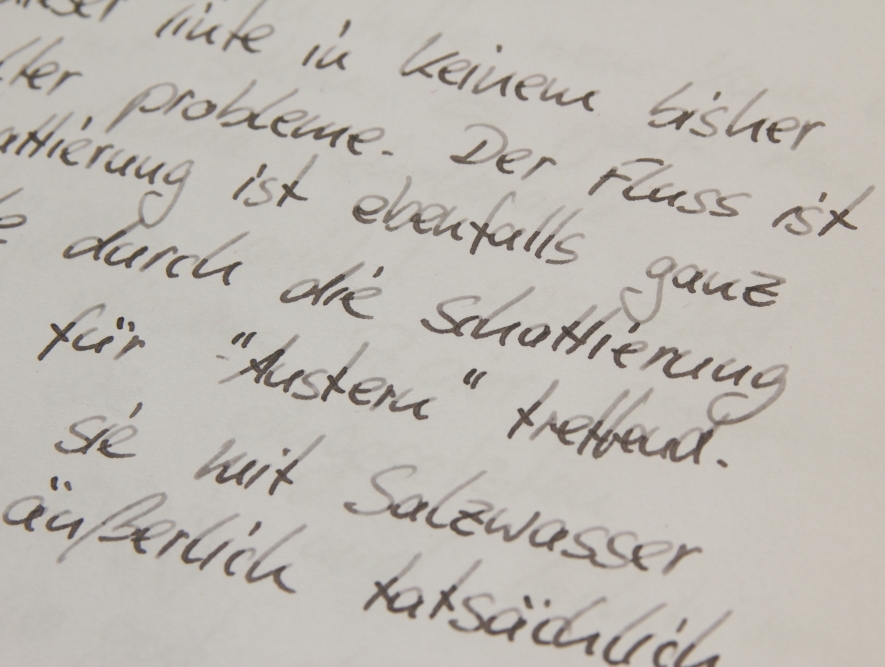 Tinte in keinem bisher
probleme. Der Fluss ist
attierung ist ebenfalls ganz
durch die Schattierung
für "Austern" treffend.
sie mit Salzwasser
äußerlich tatsächlich